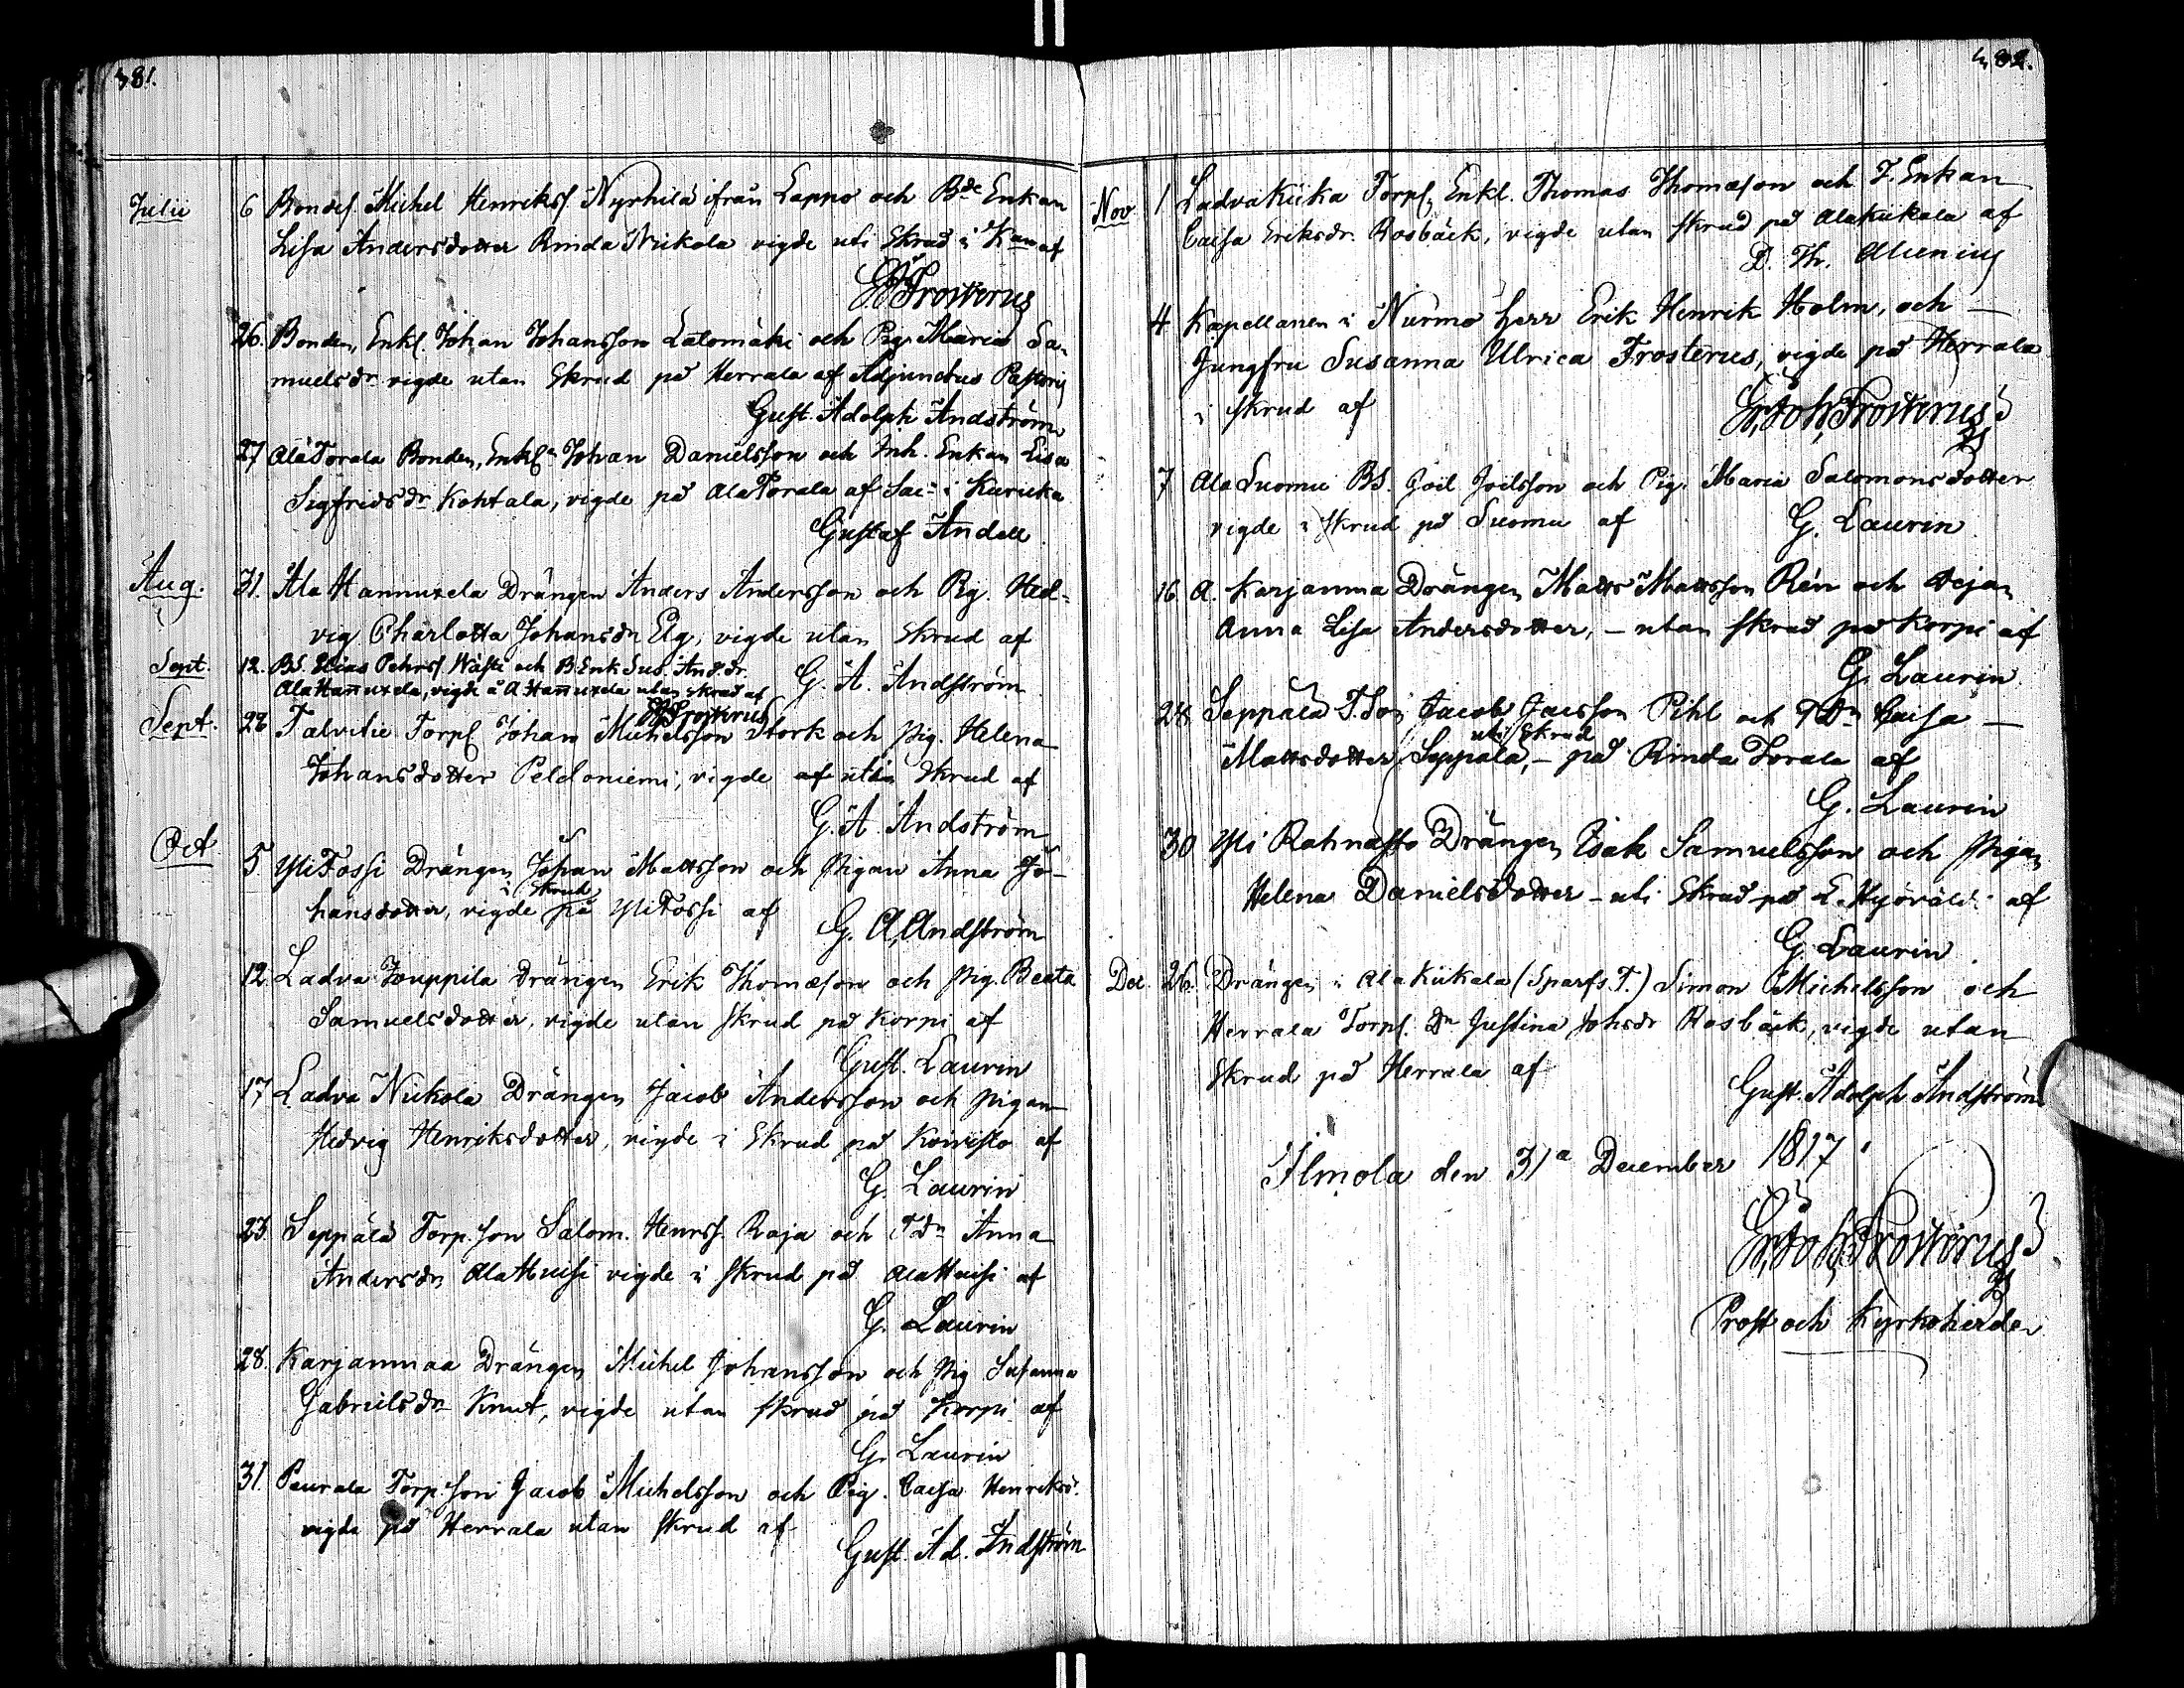 481.
Julii 6 Bondes. Michel Henrikss Nyrhilä ifrån Lappo och Bde Enkan
Lisa Andersdotter Rinda Nickola vigde uti Skrud i Kan af
Frosterus
26. Bonden, Enkl. Johan Johansson Latomäki och Pig. Maria Sa-
muelsdr vigde utan Skrud på Herrala af Adjunctus Pastoris
Gust. Adolph Andström
27 AlaTorala Bonden, Enkl. Johan Danielsson och Inh. Enkan Lisa
Sigfridsdr Kohtala, vigde på AlaTorala af Sac: i Kuricka
Gustaf Andell
Aug. 31. Ala Hannuxela Drängen Anders Andersson och Pig. Hed-
vig Charlotta Johansdr Elg, vigde utan Skrud af
G. A. Andström
Sept. 12. BS. Elias Pehrss Wästi och B Enk Sus. And.dr
AlaHannuxela, vigde å A Hannuxela utan skrud af
Frosterus
Sept. 28 Talvitie Torps Johan Michelsson Stork och pig. Helena
Johansdotter Peldoniemi, vigde af utan Skrud af
G. A. Andström
Oct 5 YliFossi Drängen Johan Mattsson och pigan Anna Jo-
hansdotter, vigde i Skrud på YliFossi af
G. A. Andström
12. Ladva Jouppila Drängen Erik Thomasson och pig. Beata
Samuelsdotter, vigde utan skrud på Korpi af
Gust. Laurin
17 Ladva Nickola Drängen Jacob Andersson och pigan
Hedvig Henriksdotter, vigde i Skrud på Koivisto af
G. Laurin
23. Seppälä Torp. son Salom. Henrss. Raja och Tdr Anna
Andersdr AlaHuisi vigde i skrud på AlaHuisi af
G. Laurin
28. Karjanmaa Drängen Michel Johansson och pig Susanna
Gabrielsdr Knut, vigde utan skrud på Korpi af
G. Laurin
31. Peurala Torp. son Jacob Michelsson och Pig. Caisa Henriksd.
vigde på Herrala utan skrud af
Gust. Ad. Andström
482.
Nov 1 Ladvakiika Torps, Enkl. Thomas Thomasson och I. Enkan
Caisa Eriksdr. Rosbäck, vigde utan skrud på Alakiikala af
D. Th. Alcenius
4 Kapellanen i Nurmo herr Erik Henrik Holm, och
Jungfru Susanna Ulrica Frosterus, vigde på Herrala
i skrud af
Er. Joh. Frosterus
7 AlaLuomu BS. Joil Joilsson och Pig. Maria Salomonsdotter
vigde i skrud på Luomu af
G. Laurin
16 A. Karjanma Drängen Matts Mattsson Rén och
Anna Lisa Andersdotter, - utan skrud på Korpi af
G. Laurin
28. Seppälä T. Son Jacob Jacsson Pihl och T Dr Caisa
Mattsdotter Seppälä, uti Skrud - på Rinda Torala af
G. Laurin
30 Yli Rahnasto Drängen Isak Samuelsson och pigan
Helena Danielsdotter - uti Skrud på L. Hyöväldi af
G. Laurin
Dec. 26. Drängen i AlaKiikala (Sparfs. T.) Simon Michelsson och
Herrala Torps. Dr Justina Johsdr Rosbäck, vigde utan
Skrud på Herrala af
Gust. Adolph Andström
Ilmola den 31a December 1817.
Er. Joh. Frosterus
Prost och Kyrkoherde